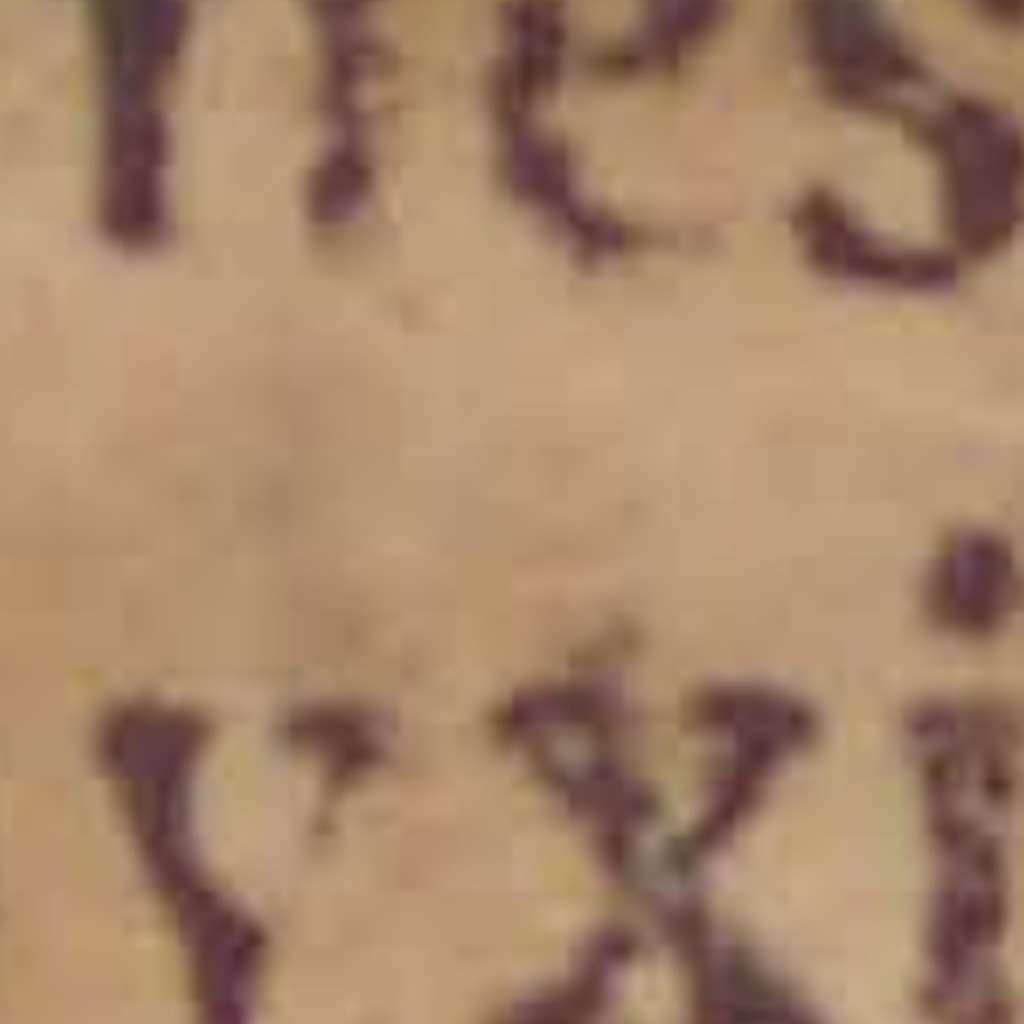 nes
vxi